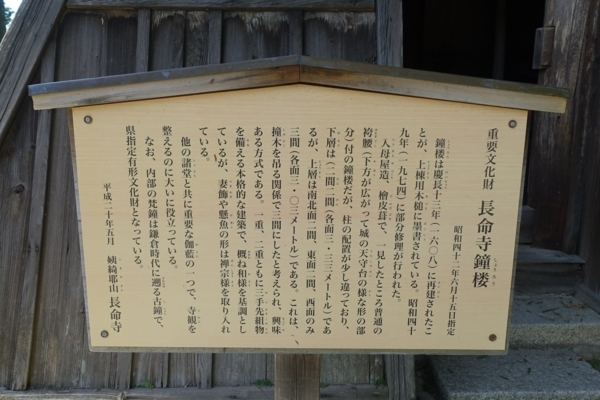 重要文化財　長命寺鐘楼
しょうろう
昭和四十二年六月十五日指定
鐘楼は慶長十三年（一六〇八）に再建されたこ
とが、上棟用木槌に墨書されている。昭和四十
九年（一九七四）に部分修理が行われた。
入母屋造、檜皮葺で、一見したところ普通の
袴腰（下方が広がって城の天守台の様な形の部
分）付の鐘楼だが、柱の配置が少し違っており、
下層は二間二間（各面三・三三メートル）であ
るが、上層は南北面二間、東面二間、西面のみ
三間（各面三・〇三メートル）である。これは、
撞木を吊る関係で三間にしたと考えられ、興味
ある方式である。一重、二重ともに三手先組物
を備える本格的な建築で、概ね和様を基調とし
ているが、妻飾や懸魚の形は禅宗様を取り入れ
ている。
他の諸堂と共に重要な伽藍の一つで、寺観を
整えるのに大いに役立っている。
なお、内部の梵鐘は鎌倉時代に遡る古鐘で、
県指定有形文化財となっている。
平成二十年五月　姨綺耶山　長命寺